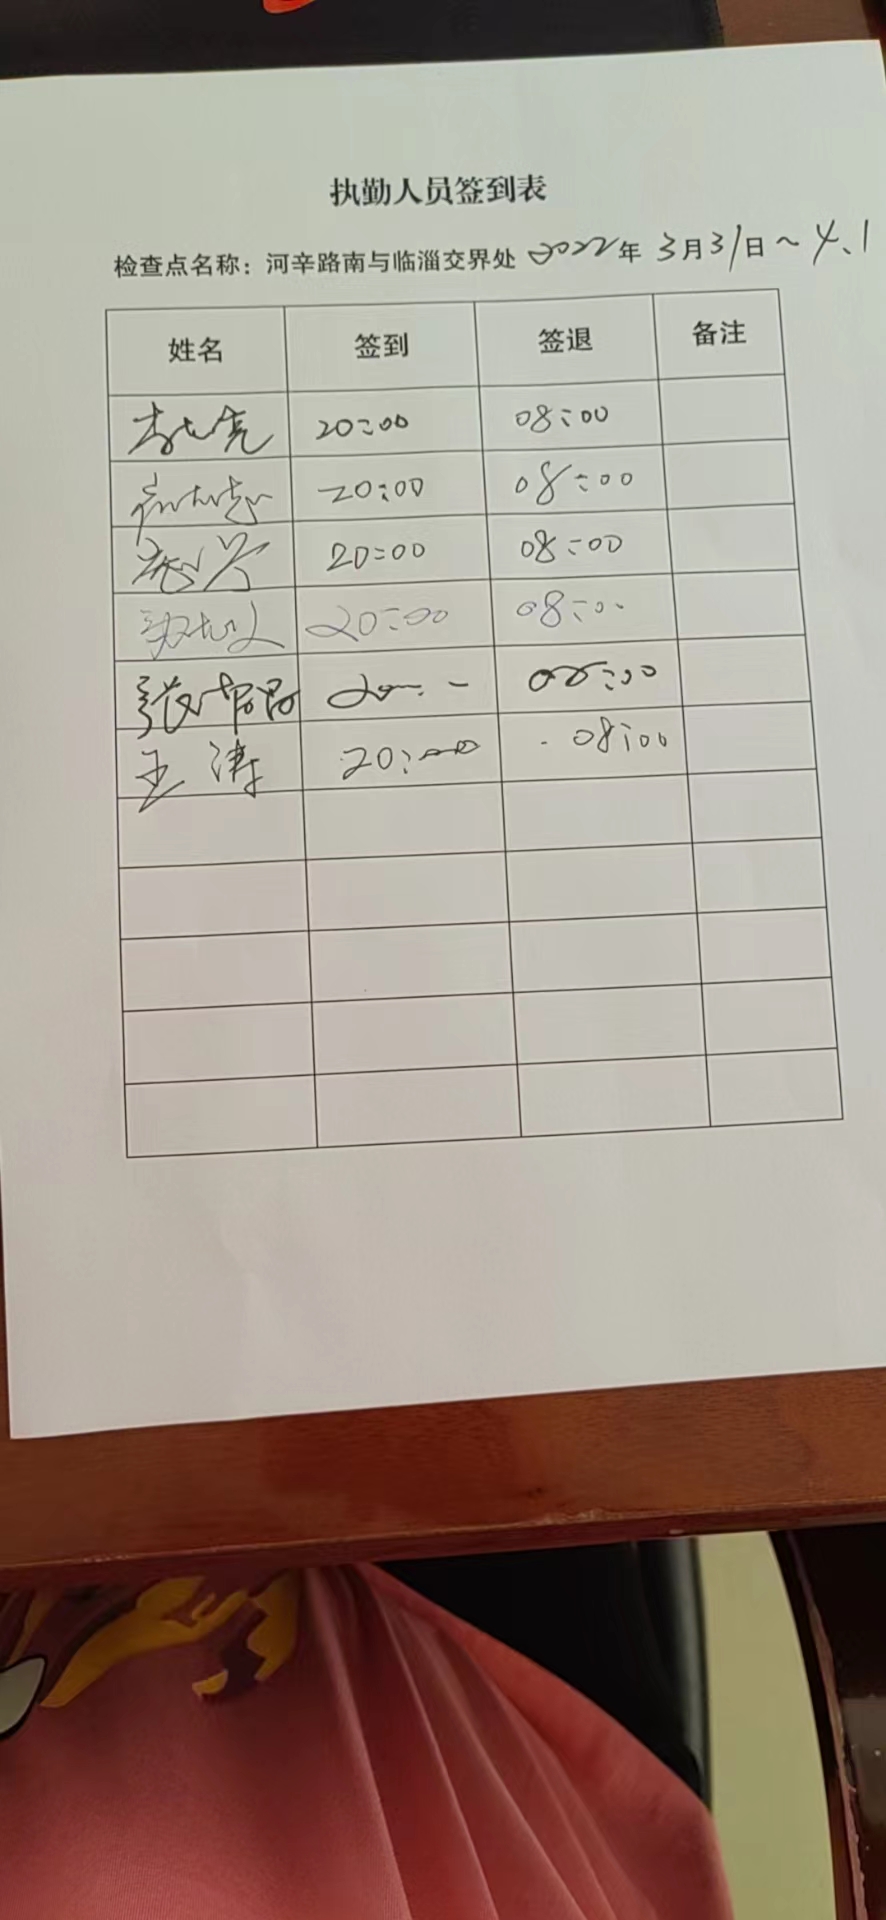 执勤人员签到表
检查点名称：河辛路南与临淄交界处 2022年 3月31日～4.1
姓名 签到 签退 备注
20:00 08:00
20:00 08:00
20:00 08:00
20:00 08:00
张 20:00 08:00
王涛 20:00 08:00